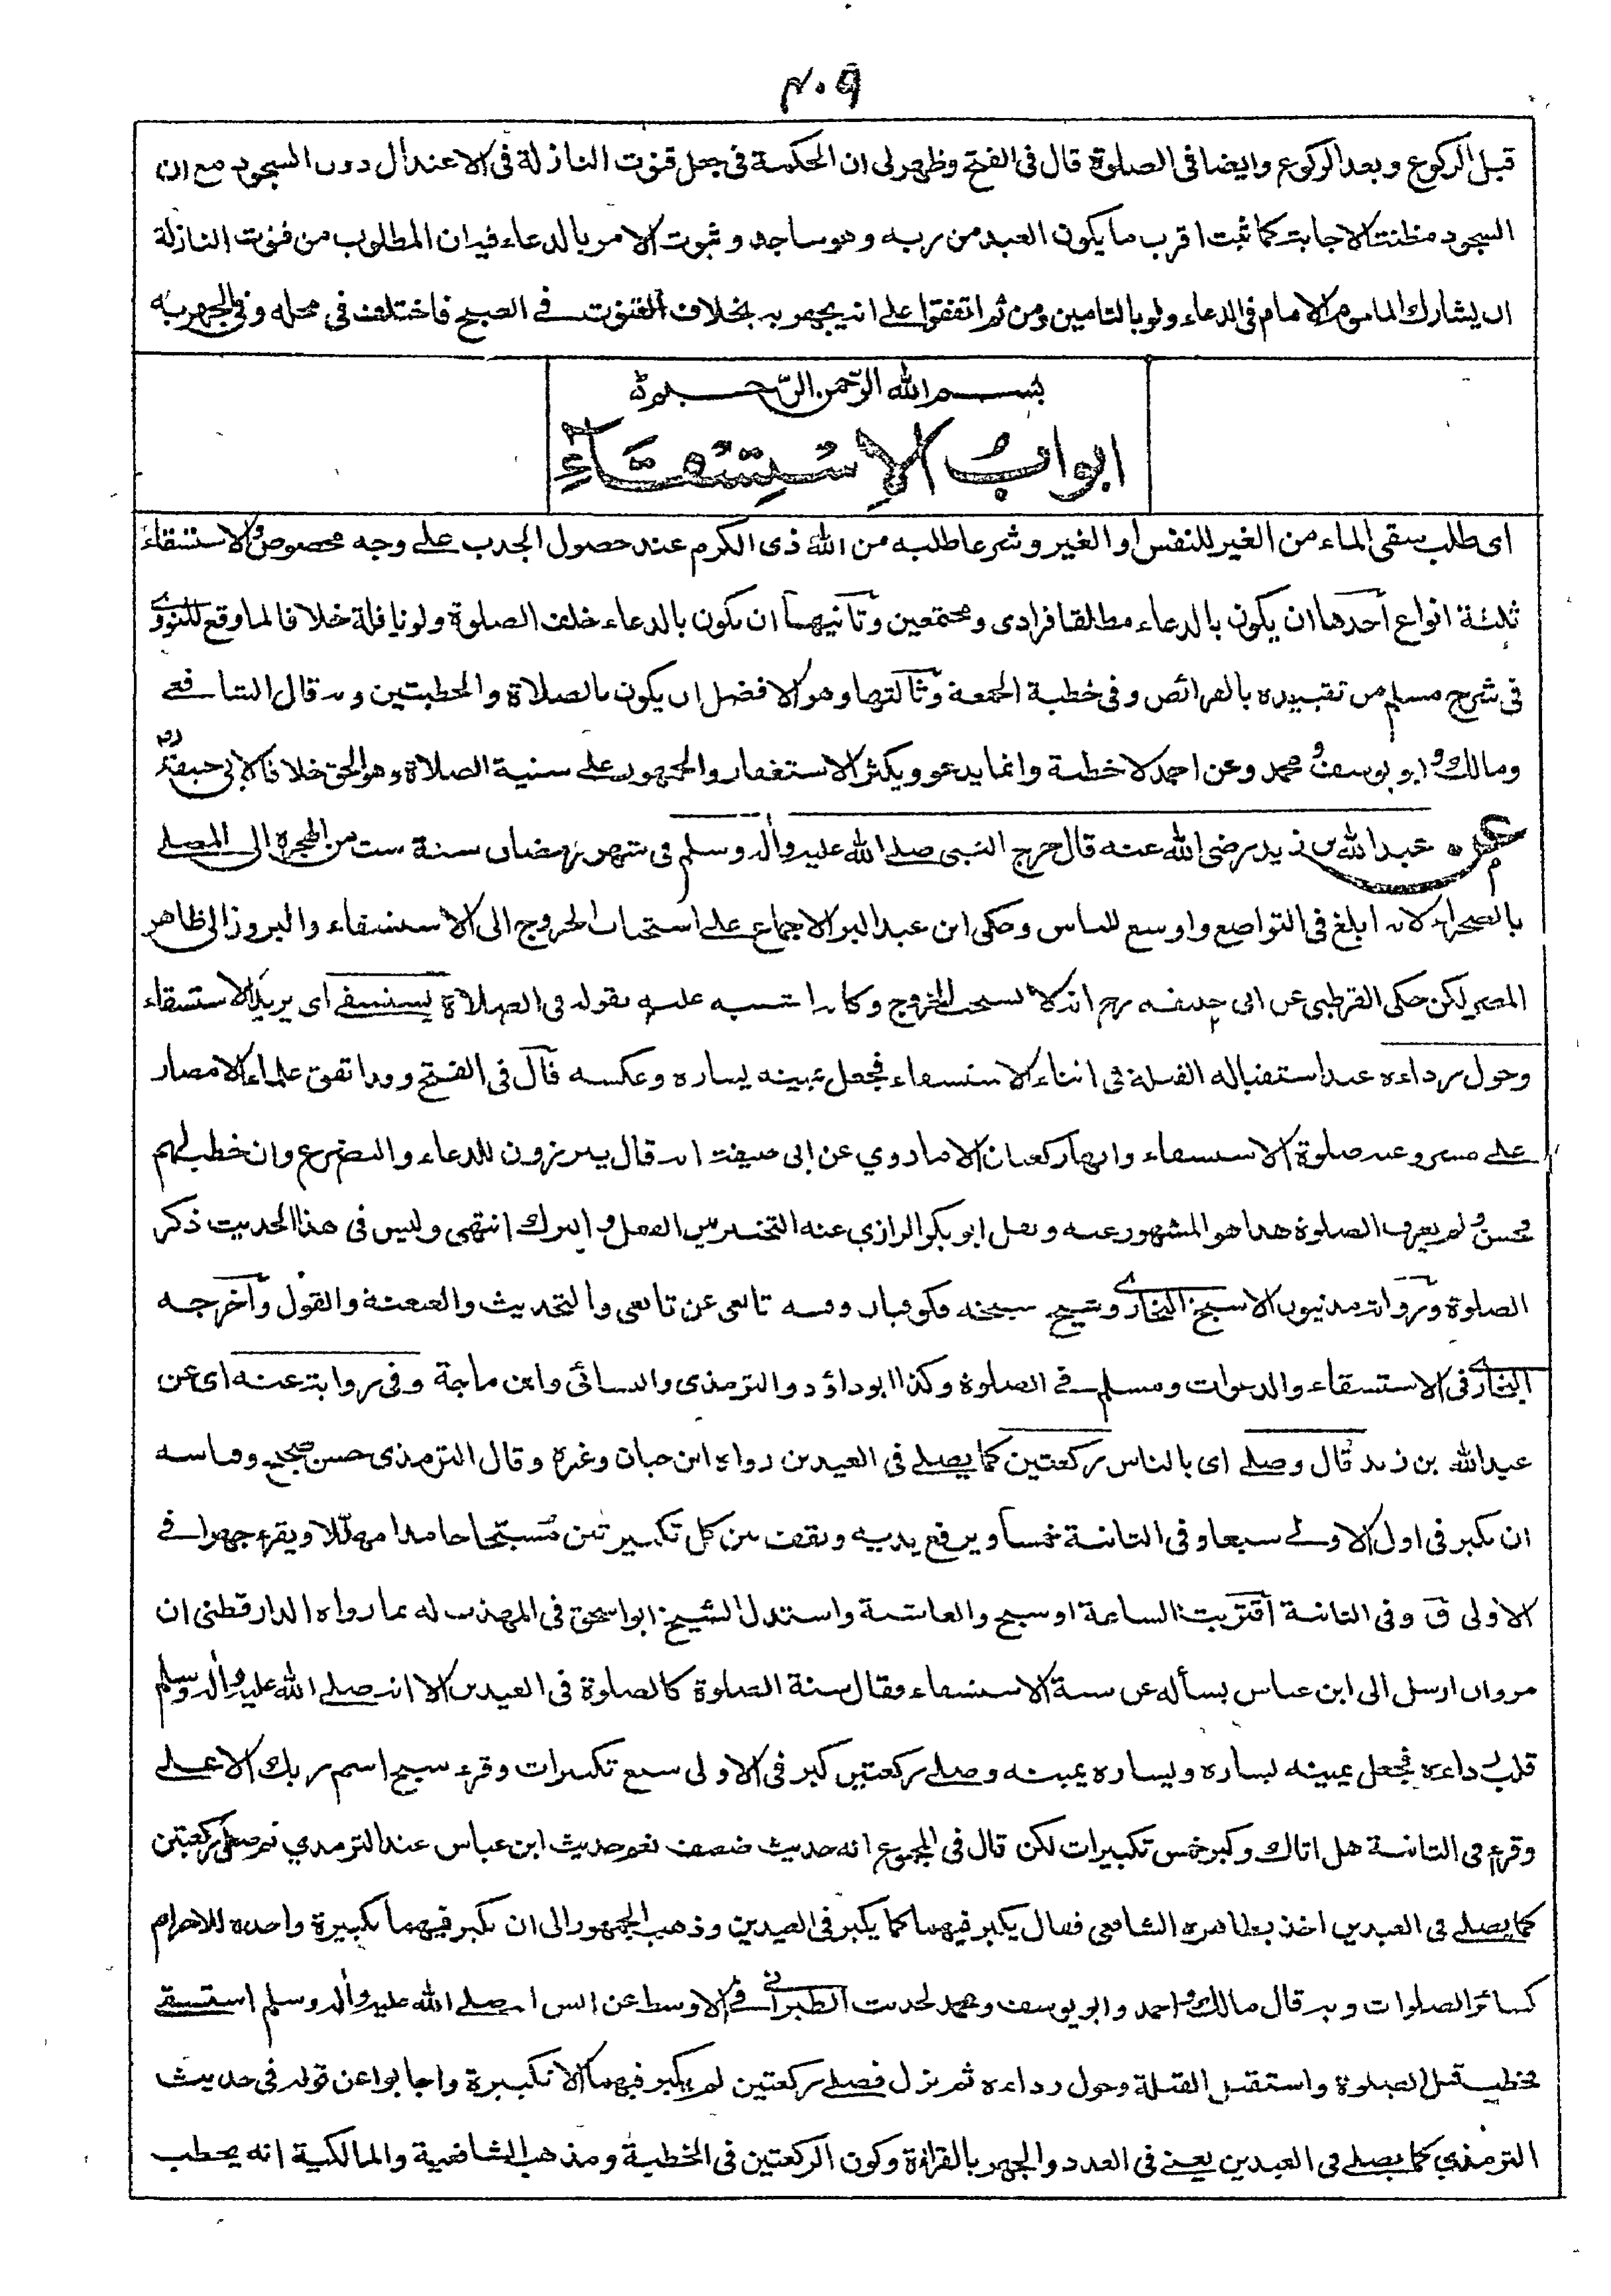 ٣٠٩
قبل الركوع وبعد الركوع وايضا فى الصلوة قال فى الفتح وظهر لى ان الحكمة فى جعل قنوت النازلة فى الاعتدال دون السجود مع ان
السجود مظنة الاجابة كما ثبت اقرب ما يكون العبد من ربه وهو ساجد وثبوت الامر بالدعاء فيه ان المطلوب من قنوت النازلة
ان يشارك الماموم الامام فى الدعاء ولو بالتامين ومن ثم اتفقوا على انه يجهر به بخلاف القنوت فى الصبح فاختلف فى محله وفى الجهر به
بسم الله الرّحمن الرّحيم
ابوابُ الاِسْتِسْقَاءِ
اى طلب سقى الماء من الغير للنفس او الغير وشرعا طلبه من الله ذى الكرم عند حصول الجدب على وجه مخصوص والاستسقاء
ثلثة انواع احدها ان يكون بالدعاء مطلقا فرادى ومجتمعين وثانيهما ان يكون بالدعاء خلف الصلوة ولو نافلة خلافا لما وقع للنووى
فى شرح مسلم من تقييده بالفرائض وفى خطبة الجمعة وثالثها وهو الافضل ان يكون بالصلاة والخطبتين وبه قال الشافعى
ومالك وابو يوسف ومحمد وعن احمد لا خطبة وانما يدعو ويكثر الاستغفار والجمهور على سنية الصلاة وهو الحق خلافا لابى حنيفة رح
عن عبد الله بن زيد رضى الله عنه قال خرج النبى صلى الله عليه واله وسلم فى شهر رمضان سنة ست من الهجرة الى المصلى
بالصحراء لانه ابلغ فى التواضع واوسع للناس وحكى ابن عبد البر الاجماع على استحباب الخروج الى الاستسقاء والبروز الى ظاهر
المصر لكن حكى القرطبى عن ابى حنيفه رح انه لا يستحب الخروج وكانه اشتبه عليه بقوله فى الصلاة يستسقى اى يريد الاستسقاء
وحول رداءه عند استقباله القبلة فى اثناء الاستسقاء فجعل يمينه يساره وعكسه قال فى الفتح وقد اتفق علماء الامصار
على مشروعية صلوة الاستسقاء وانها ركعتان الا ما روي عن ابى حنيفة انه قال يبرزون للدعاء والتضرع وان خطب لهم
فحسن ولم يعرف الصلوة هذا هو المشهور عنه ونقل ابو بكر الرازي عنه التخيير بين الفعل والترك انتهى وليس فى هذا الحديث ذكر
الصلوة ورواته مدنيون الا شيخ البخارى وشيخ شيخه فكوفيان وفيه تابعى عن تابعى والتحديث والعنعنة والقول واخرجه
البخارى فى الاستسقاء والدعوات ومسلم فى الصلوة وكذا ابو داؤد والترمذى والنسائى وابن ماجة وفى رواية عنه اى عن
عبد الله بن زيد قال وصلى اى بالناس ركعتين كما يصلى فى العيدين رواه ابن حبان وغيره وقال الترمذى حسن صحيح وقياسه
ان يكبر فى اول الاولى سبعا وفى الثانية خمسا ويرفع يديه ويقف بين كل تكبيرتين مُسبّحا حامدا مهلّلا ويقرء جهرا فى
الاولى ق وفى الثانية اقتربت الساعة او سبح والغاشية واستدل الشيخ ابو اسحق فى المهذب له بما رواه الدارقطنى ان
مروان ارسل الى ابن عباس يسأله عن سنة الاستسقاء فقال سنة الصلوة كالصلوة فى العيدين الا انه صلى الله عليه واله وسلم
قلب رداءه فجعل يمينه يساره ويساره يمينه وصلى ركعتين كبر فى الاولى سبع تكبيرات وقرء سبح اسم ربك الاعلى
وقرء فى الثانية هل اتاك وكبر خمس تكبيرات لكن قال فى المجموع انه حديث ضعيف نعم حديث ابن عباس عند الترمدي ثم صلى ركعتين
كما يصلى فى العيدين اخذ بظاهره الشافعى فقال يكبر فيهما كما يكبر فى العيدين وذهب الجمهور الى ان يكبر فيهما تكبيرة واحده للاحرام
كسائر الصلوات وبه قال مالك واحمد وابو يوسف ومحمد لحديث الطبرانى فى الاوسط عن انس انه صلى الله عليه واله وسلم استسقى
فخطب قبل الصلوة واستقبل القبلة وحول رداءه ثم نزل فصلى ركعتين لم يكبر فيهما الا تكبيرة واجابوا عن قوله فى حديث
الترمذي كما يصلى فى العيدين يعنى فى العدد والجهر بالقراءة وكون الركعتين فى الخطبة ومذهب الشافعية والمالكية انه يخطب